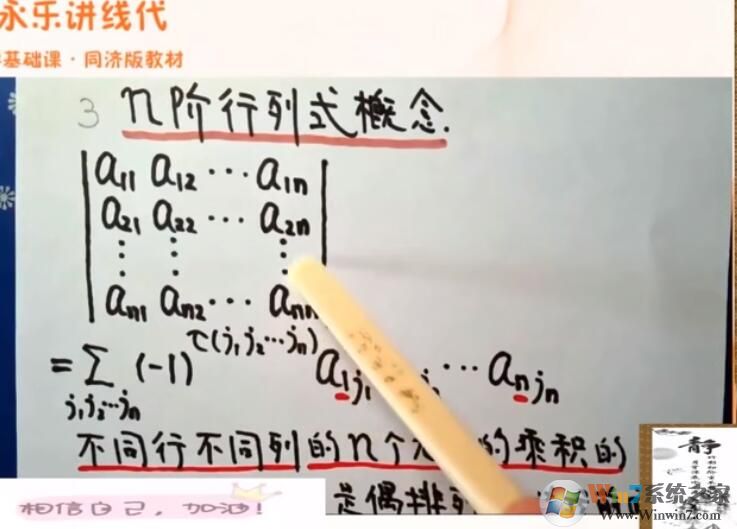 永乐讲线代
基础课·同济版教材
3 n阶行列式概念.
a11 a12 ··· a1n
a21 a22 ··· a2n
⋮ ⋮ ⋮
an1 an2 ··· ann
= Σ (-1) τ(j1 j2 ··· jn) a1j1 ··· anjn
j1 j2 ··· jn
不同行不同列的n个 的乘积的
是偶排
相信自己，加油！
静
Win7系统之家
Www.Winwin7.com